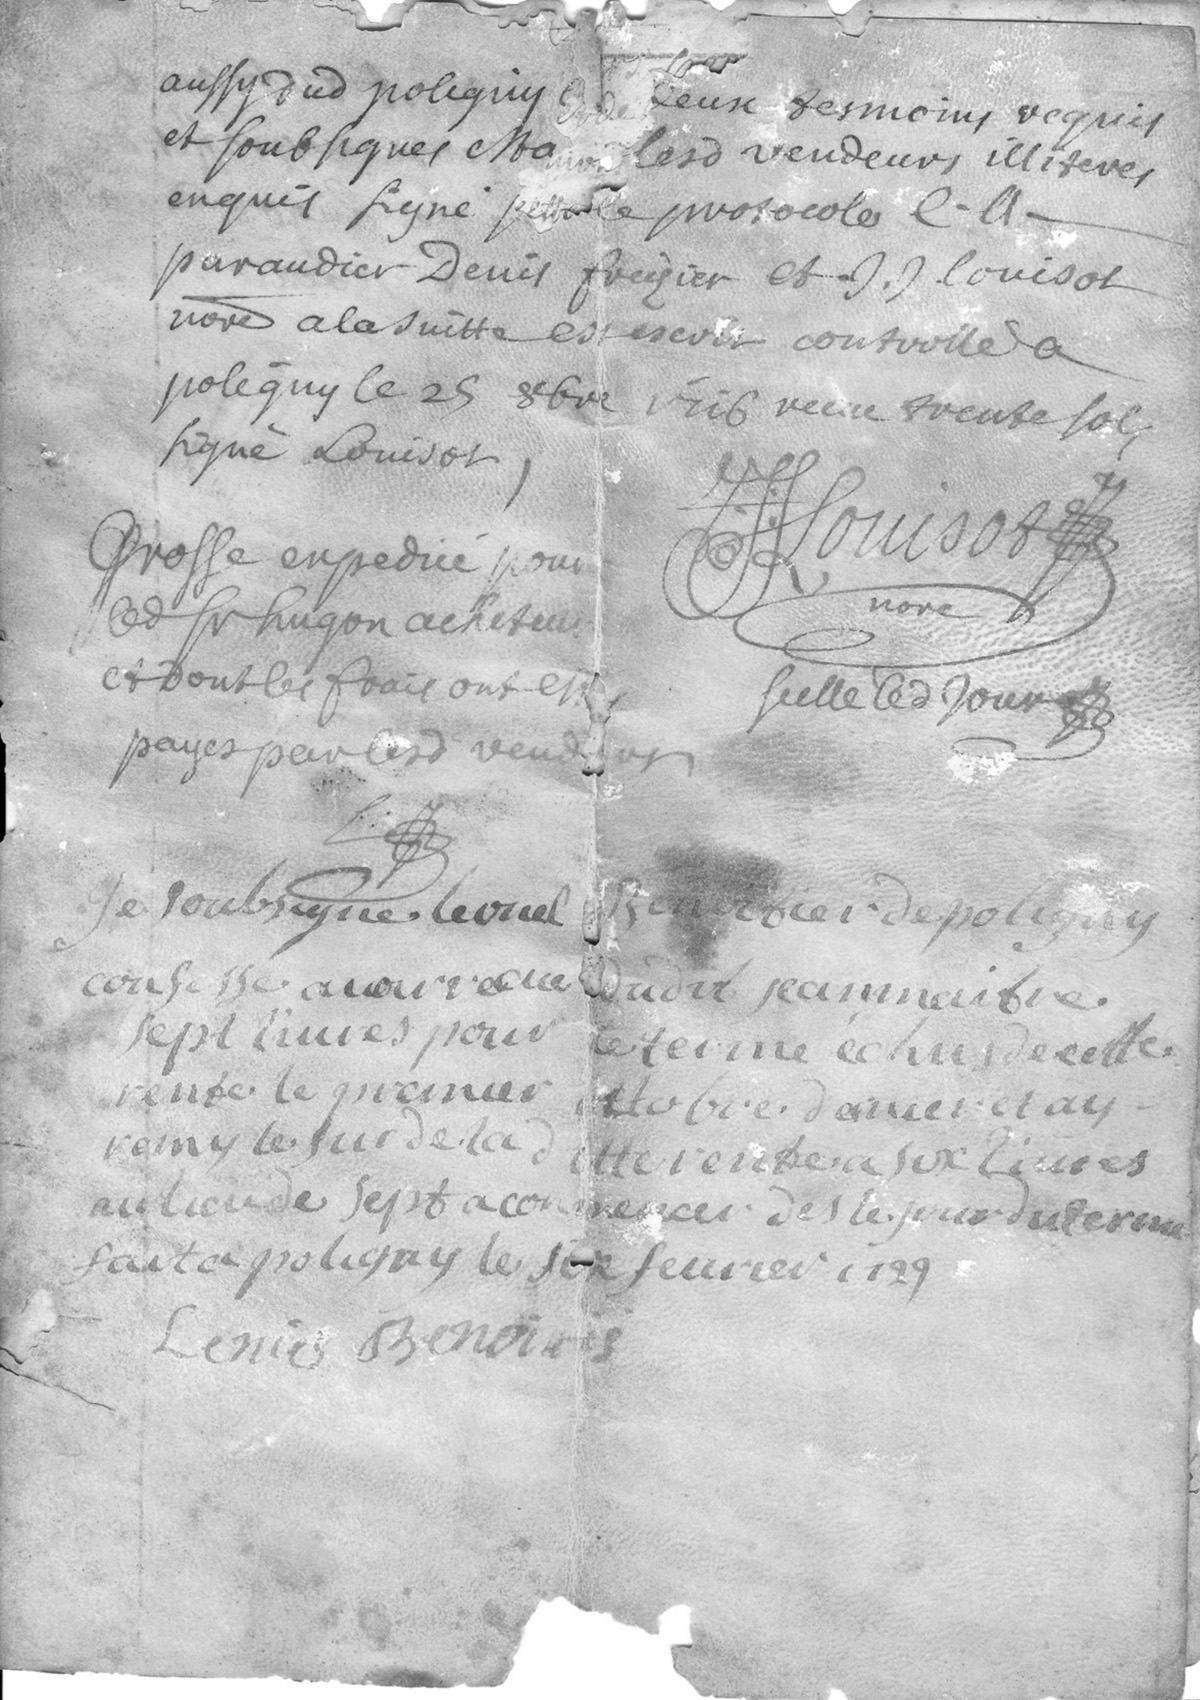 aussy dud poligny deux tesmoins requis
et soubsignes lesd vendeurs illiteres
enquis signé le protocole C. A.
paraudier Denis frezier et J. J. louisot
nore a la suitte est escrit controllé a
poligny le 25 8bre receu trente sols
signé Louisot,
Grosse expedieé pour
led sr hugon achteur
et dont les frais ont esté
payes par lesd vendeurs
JJLouisot
nore
seelle led Jour
Je soubsigne de poligny
confesse auoir receu dudit jean maitre
sept liures pour le terme échus de cette
rente le premier octobre dernier et ay
remy le sur de la ditte rente a six liures
au lieu de sept a commencer des le jour du terme
fait a poligny le six feurier